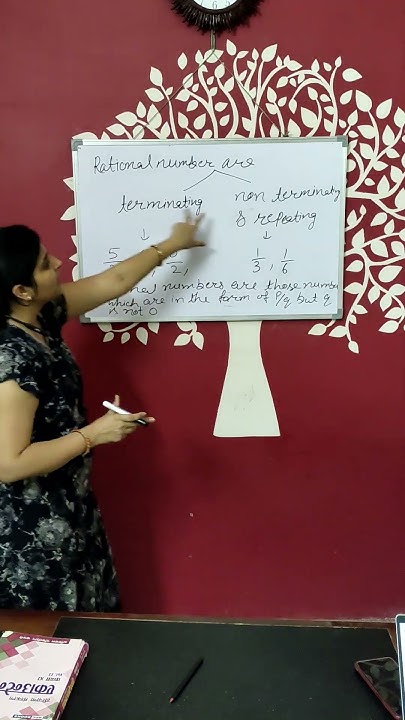 Rational number are
terminating
non terminating
& repeating
5
2,
1/3, 1/6
numbers are those number
which are in the form of P/q but q
is not 0